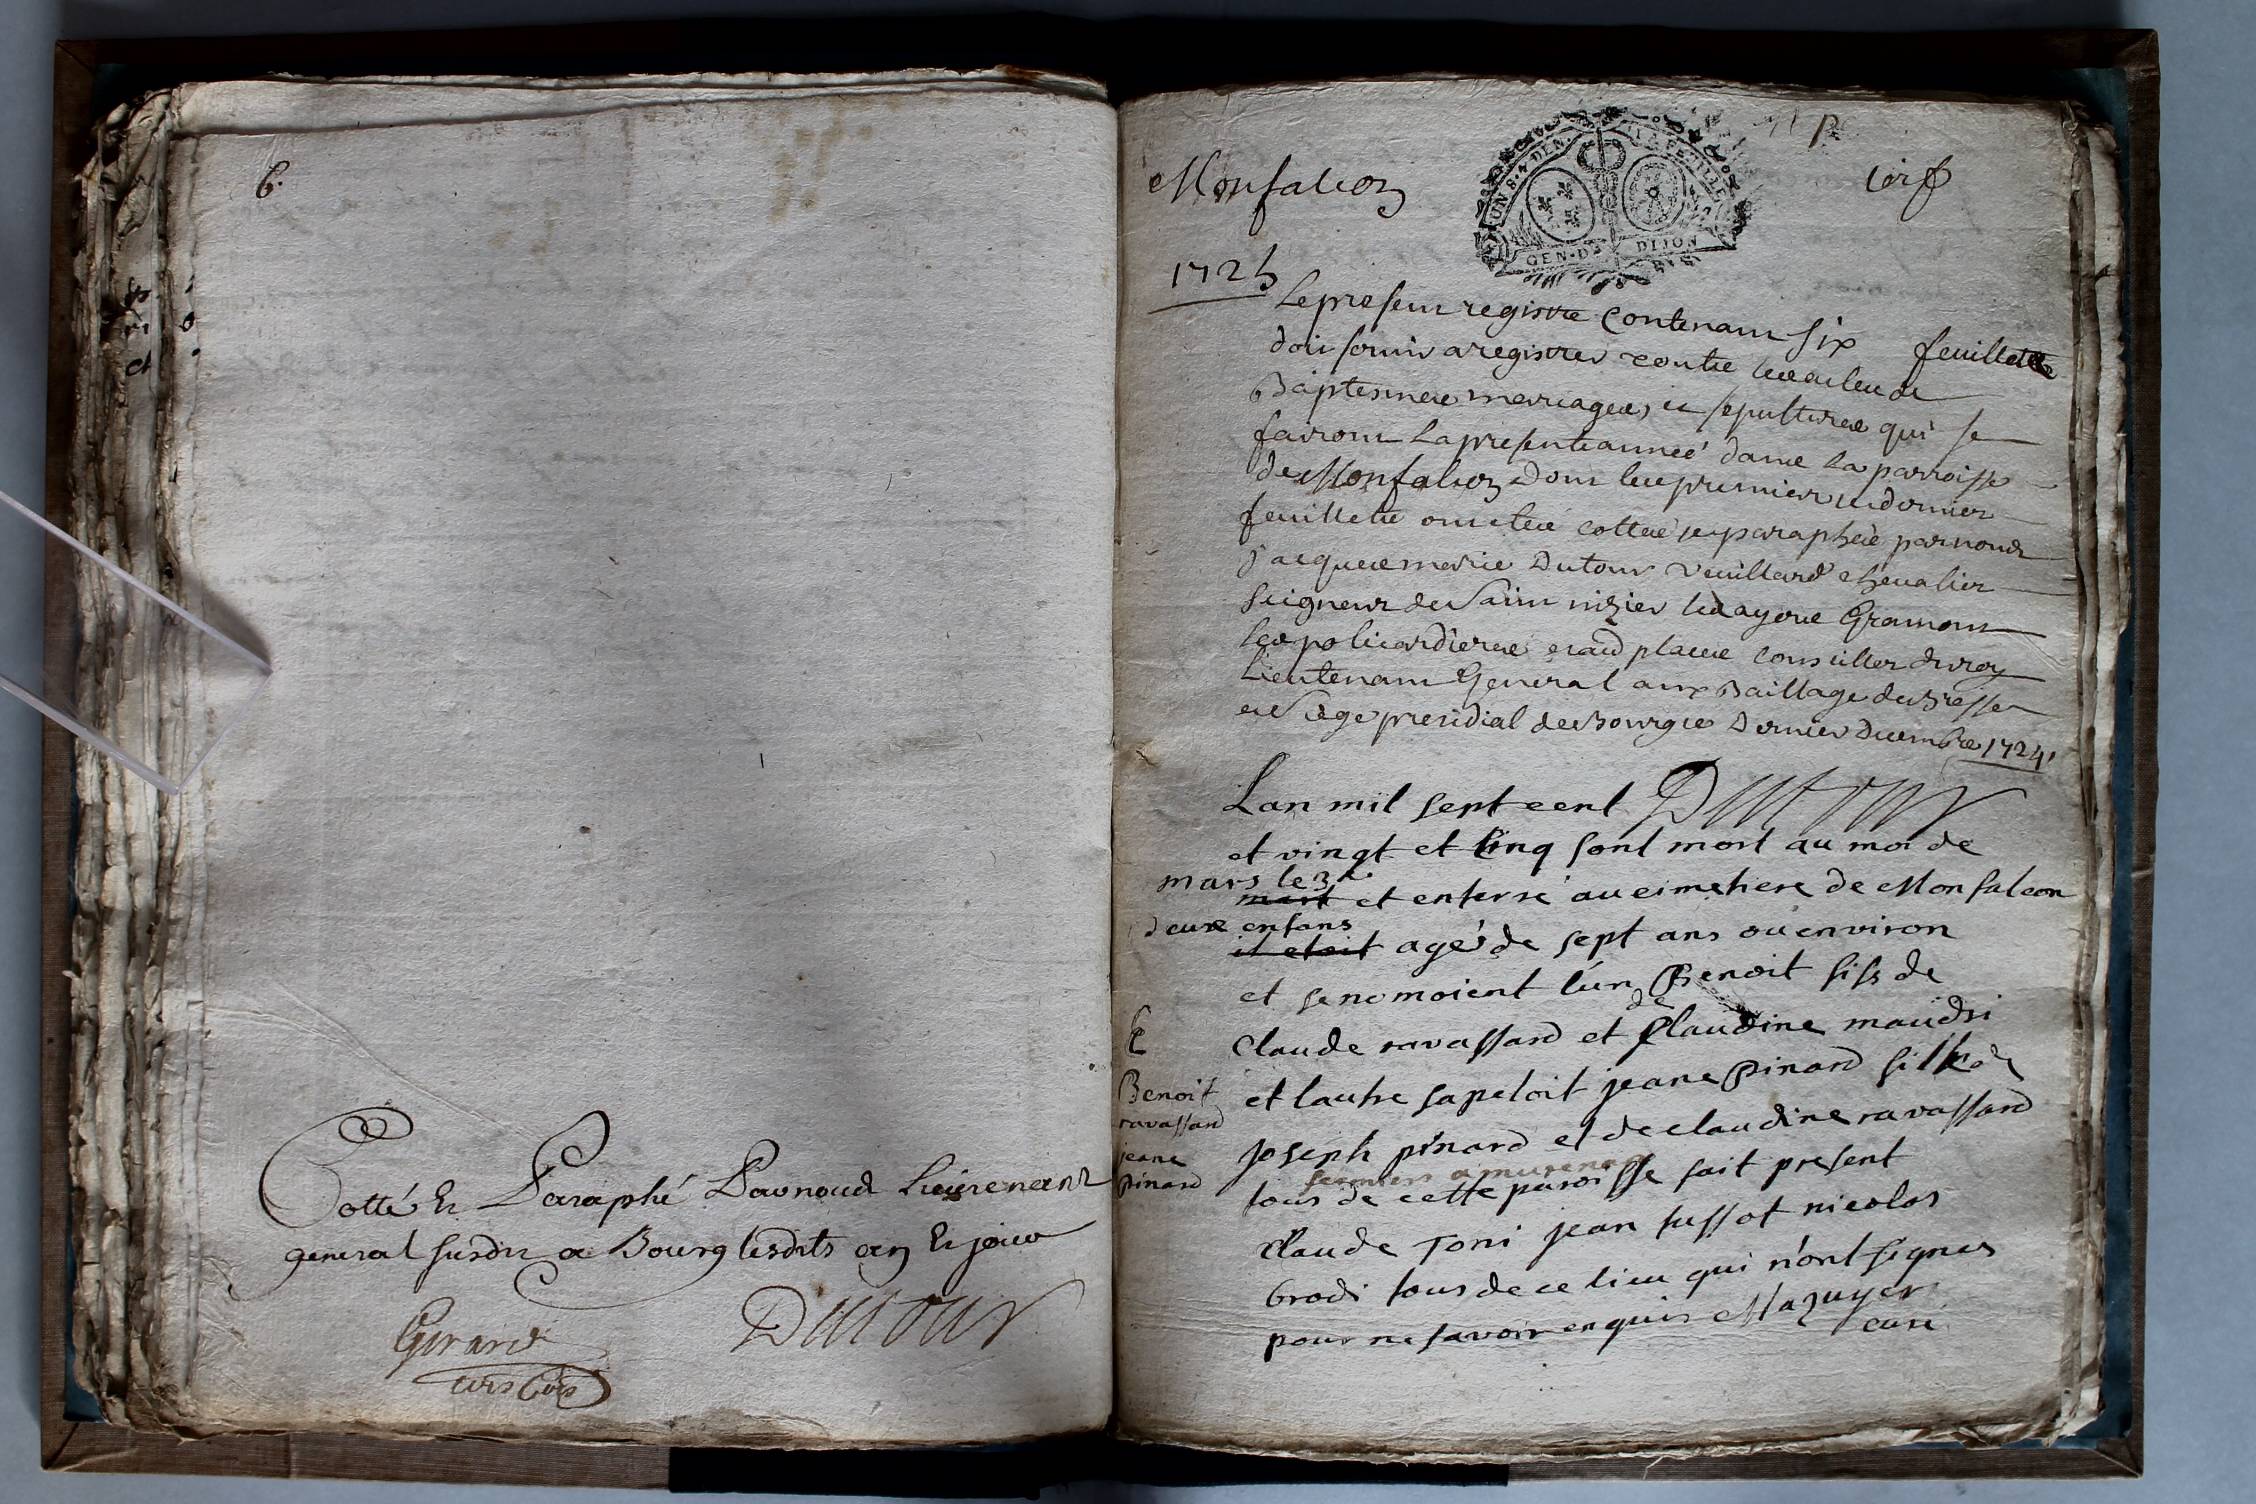 6.
Cotté Et Paraphé Parnous Lieutenant
general susdit a Bourg lesdits an Et jour
Girard
Dutour
Monfalcon
UN S. 4 DEN. LA FEUILLE
GEN. DE DIJON
1725
Le present registre Contenant six feuillets
doit servir a registrer toutte les actes de
Baptesmes mariages, et sepultures qui se
fairont La presente année dans La parroisse
de Monfalcon Dont les premier et dernier
feuillets ont etés cottés et paraphés par nous
jacques marie Dutour Veuillard chevalier
seigneur de Saint nizier
Lieutenant General aux Baillage de Bresse
et Siege presidial de Bourg ce Dernier Decembre 1724.
Lan mil sept cent Dutour
et vingt et cinq sont mort au moi de
mars le 3
mars et enterré au cimetiere de Monfalcon
deux enfans
il etoit agés de sept ans ou environ
et se nomoient l'un Benoit fils de
de
Claude ravassard et Claudine maudri
et lautre sapeloit jeane pinard fille de
joseph pinard et de claudine ravassard
tous de cette paroisse fait present
Claude Toni jean sussot nicolas
brodi tous de ce lieu qui n'ont signes
pour ne savoir enquis Mazuyer
curé
Benoit
ravassard
jeane
pinard